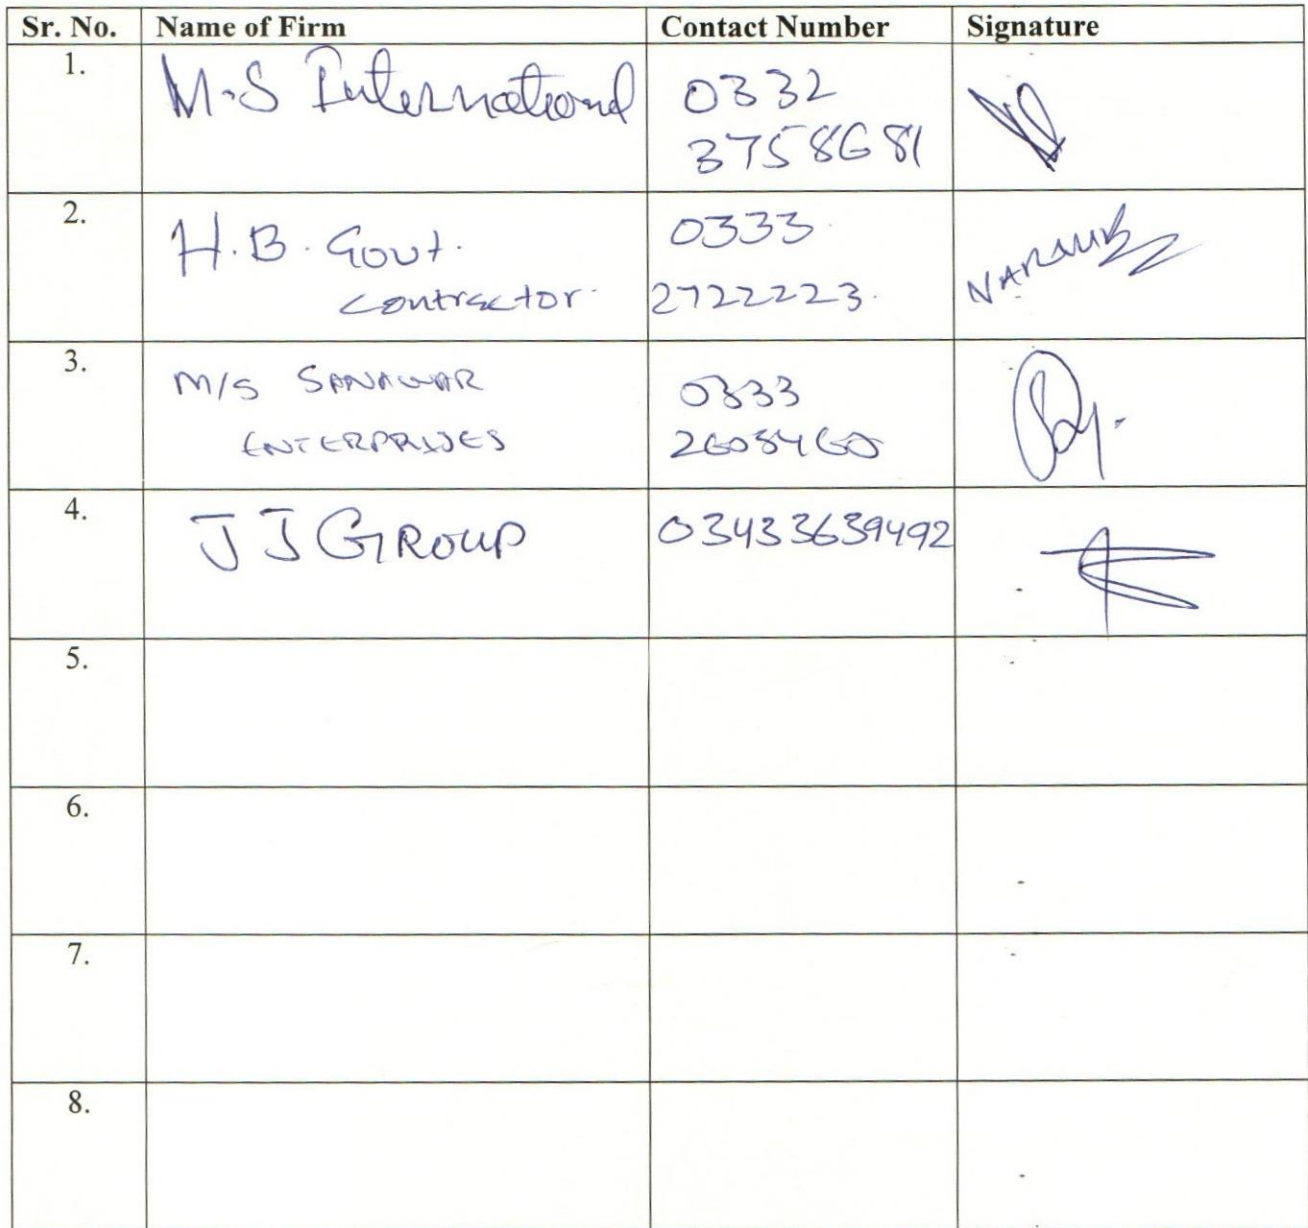 Sr. No. Name of Firm Contact Number Signature
1. M.S International 0332
3758681
2. H.B. Govt. 0333
Contractor 2722223
3. M/S SANAWAR 0333
ENTERPRISES
4. JJ GROUP 03433639492
5.
6.
7.
8.